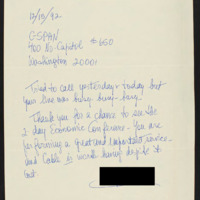 12/15/92
C-SPAN
400 No. Capitol #650
Washington 20001
Tried to call yesterday & today but
your line was busy, busy, busy!
Thank you for a chance to see the
2 day Economic Conference - You are
performing a great and important service -
and Cable is worth having despite its
cost.